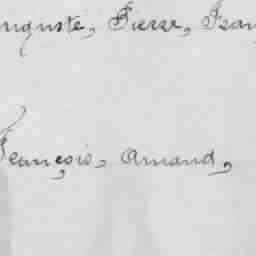 Auguste, Pierre, Jean
François, Amand,